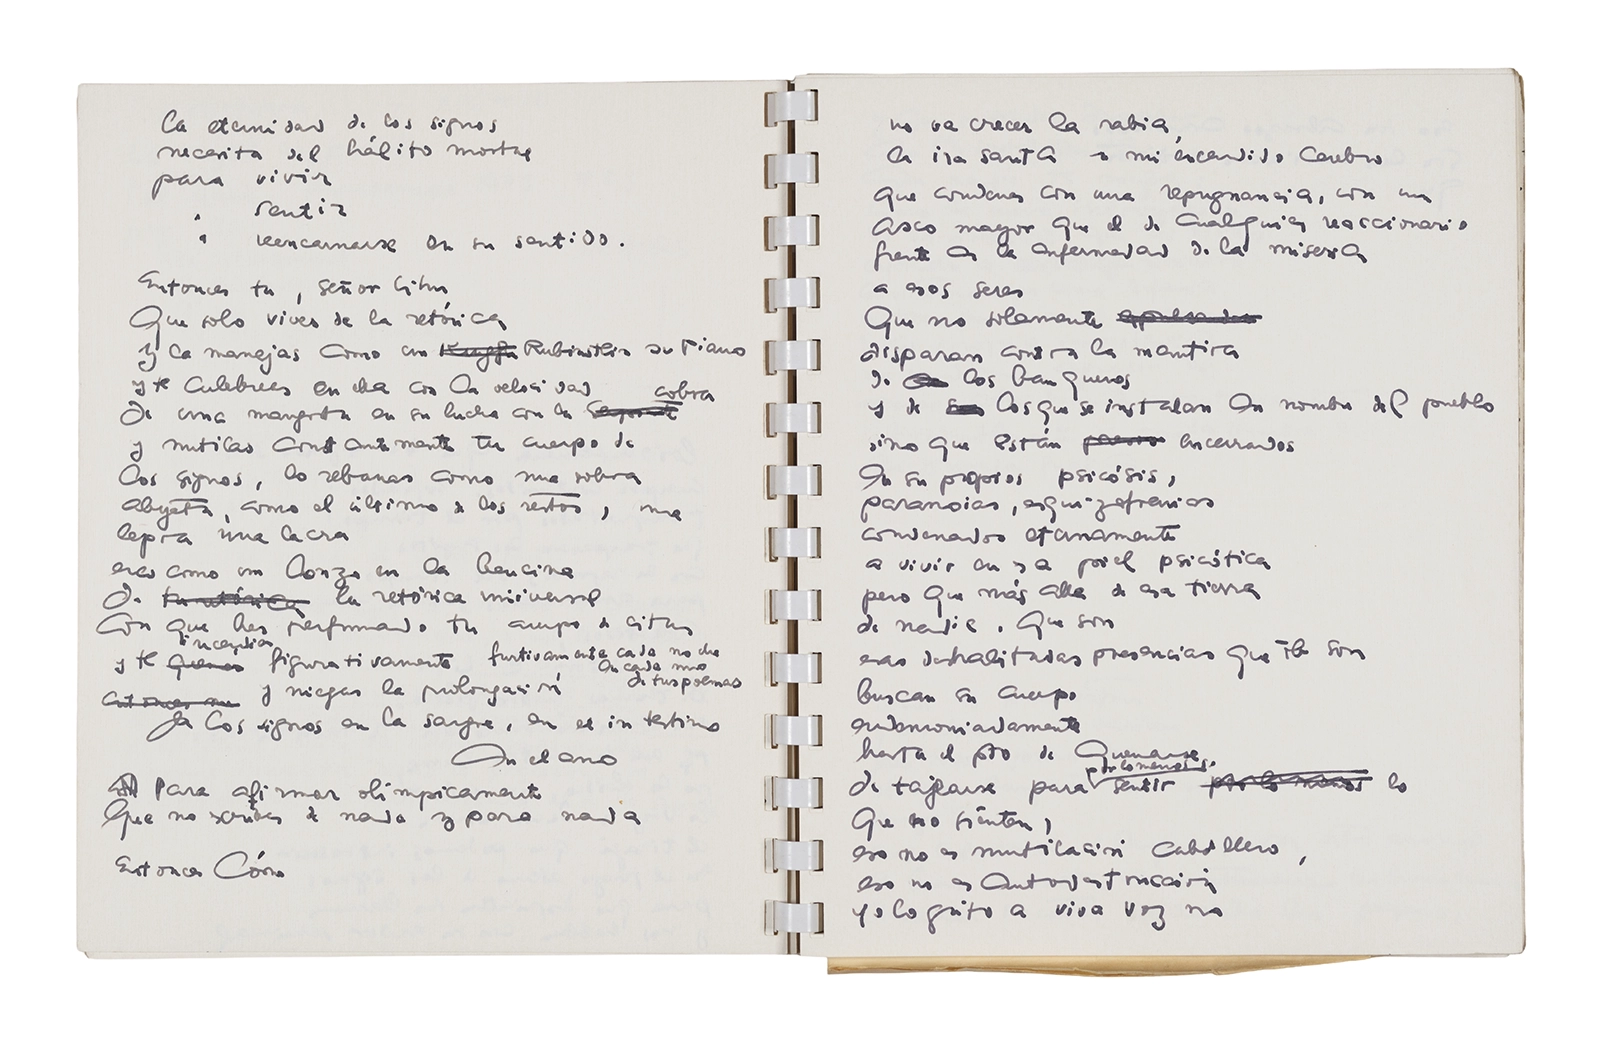 la eternidad de los signos
necesita del hálito mortal
para vivir
" sentir
" reencarnarse en su sentido.
Entonces tu, señor Lihn
Que solo vives de la retórica
y la manejas como un Rubinstein su Piano
y te culebrees en ella con la velocidad
cobra
de una mangosta en su lucha con la
y mutilas constantemente tu cuerpo de
los signos, lo rebanas como una sobra
abyecta, como el último de los restos, una
lepra una lacra
eres como un bonzo en la bencina
de la retórica universal
Con que has perfumado tu cuerpo de Lihn
incendias
y te figurativamente furtivamente cada noche
en cada uno
de tus poemas
y niegas la prolongación
de los signos en la sangre, en el intestino
en el ano
Para afirmar olimpicamente
Que no escribes de nada y para nada
Entonces Cómo
no va crecer la rabia,
la ira santa o mi encendido cerebro
que condenas con una repugnancia, con un
asco mayor que el de cualquier reaccionario
frente a la enfermedad de la miseria
a esos seres
Que no solamente
disparan contra la mentira
de los banqueros
y de los que se instalan en nombre del pueblo
sino que están encerrados
en su propios psicósis,
paranoias, esquizofrenias
condenados eternamente
a vivir en la piel psicótica
pero que más alla de esa tierra
de nadie. Que son
esas deshabitadas presencias que son
buscan su cuerpo
endemoniadamente
hasta el pto de Quemarse,
por lo menos
de tajearse para sentir lo
Que no sienten,
eso no es mutilación Caballero,
eso no es autodestrucción
yo lo grito a viva voz no